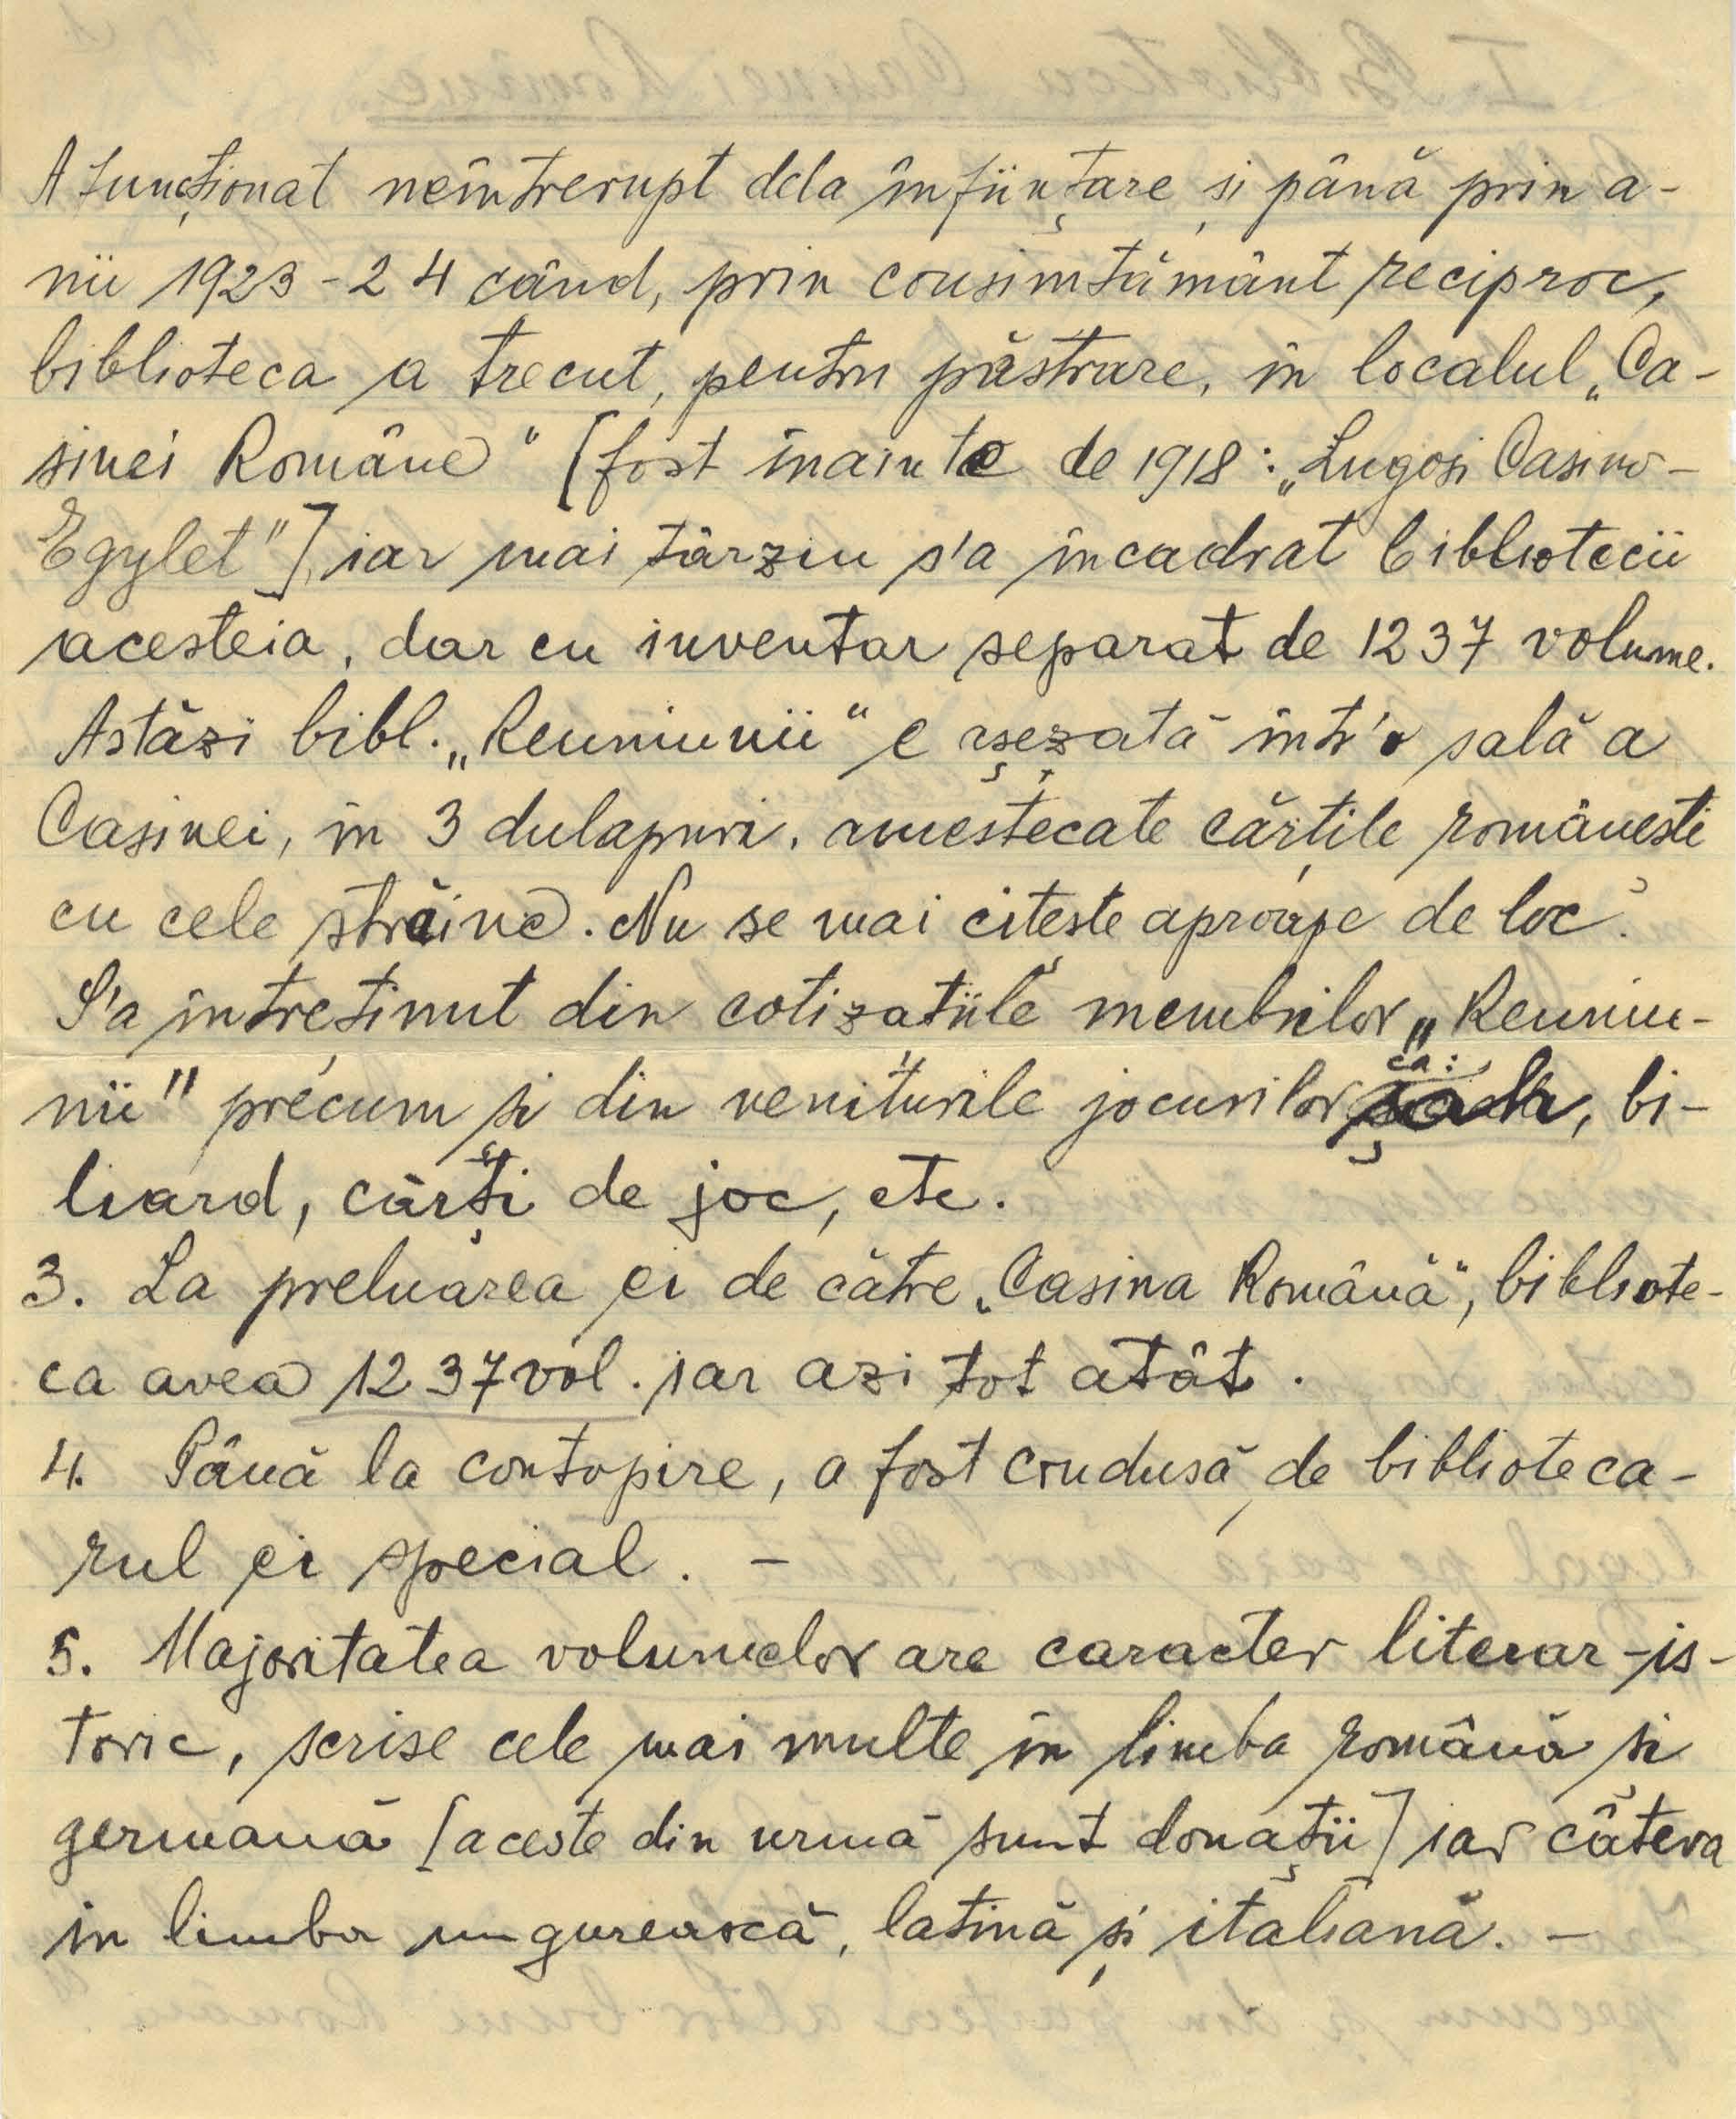 A funcționat neîntrerupt dela înființare și până prin a-
nii 1923-24 când, prin consimțământ reciproc,
biblioteca a trecut, pentru păstrare, în localul „Ca-
sinei Române" [fost înainte de 1918: „Lugosi Casino-
Egylet"] iar mai târziu s'a încadrat bibliotecii
acesteia, dar cu inventar separat de 1237 volume.
Astăzi bibl. „Reuniunii" e așezată într'o sală a
Casinei, în 3 dulapuri, amestecate cărțile românești
cu cele străine. Nu se mai citește aproape de loc.
S'a întreținut din cotizațiile membrilor „Reuniu-
nii" precum și din veniturile jocurilor ca: șah, bi-
liard, cărți de joc, etc.
3. La preluarea ei de către „Casina Română", bibliote-
ca avea 1237 vol. iar azi tot atât.
4. Până la contopire, a fost condusă de biblioteca-
rul ei special. -
5. Majoritatea volumelor are caracter literar-is-
toric, scrise cele mai multe în limba română și
germană [aceste din urmă sunt donații] iar câteva
in limba ungurească, latină și italiană. -